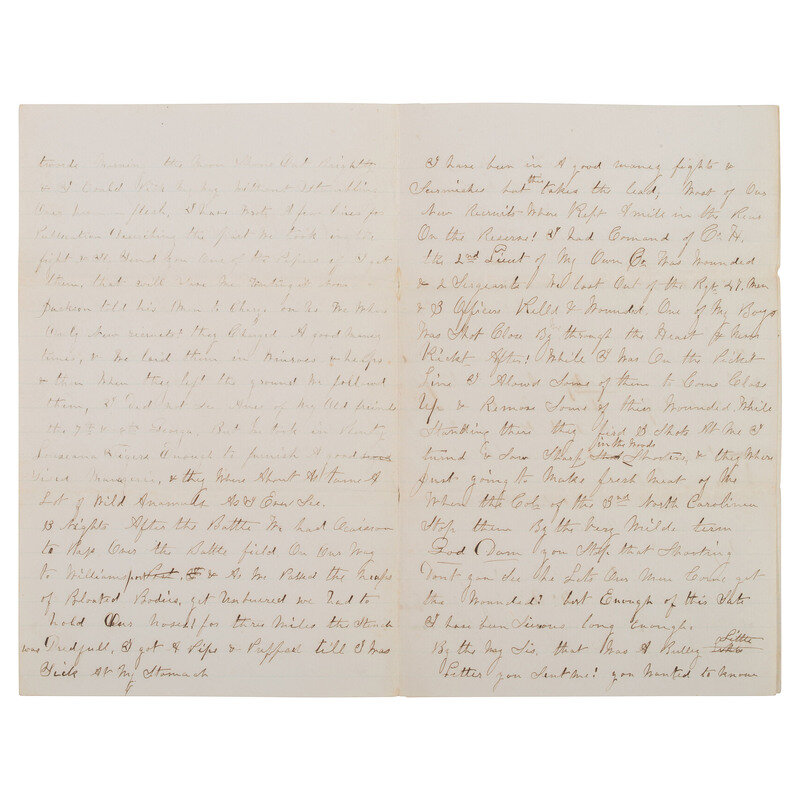 towards Morning the Moon Shone Out Brightly
& I Could Pick my way Without Stumbling
Over
fight & I Send you One of the Papers if I get
them, that will Save Me Writing it here
Jackson told his Men to Charge on us We Where
Only New recruits! they Charged A good many
times, & We laid them in Winrows & heaps
& then When they left the ground We
them, I Did not See Any of My Old friends
the 7th & 8th Georgia. But We took in Plenty
Louisiana Tigers Enough to furnish A good
Sized Managerie, & they Where About As tame A
Lot of Wild Anamals As I Ever See.
3 Nights After the Battle We had Occasion
to Pass Over the Battle field On Our Way
to Williamsport. & As We Passed the heaps
of Bloated Bodies, yet Unburied we had to
hold Our noses! for three Miles the Stench
was Dredfull, I got A Pipe & Puffed till I Was
Sick At My Stomach
I have been in A good many fights &
Scirmishes but this takes the lead, Most of Our
New Recruits Where Kept 1 mile in the Rear
On the Reserve! I had Comand of Co H.
the 2nd Lieut of My Own Co. Was Wounded
& 2 Sergeants We lost Out of the Rgt. 27 Men
& 3 Officers Killed & Wounded. One of My Boys
Was Shot Close By through the Heart & Never
Kickt After! While I Was On the Picket
Line I Alowd Some of them to Come Close
Up & Remove Some of thier Wounded. While
Standing there they fird 3 Shots At Me I
turnd & Saw Sharp in the Woods Shooters, & they Where
just going to Make fresh Meat of Me
When the Col. of the 3rd North Carolina
Stop them By the very Milde term
God Dam you Stop that Shooting
Dont you See he Lets Our Men Come get
the Wounded? but Enough of this Sis
I have been Serous long Enough.
By the Way Sis. that Was A Bulley Little
Letter you Sent Me! you Wanted to know